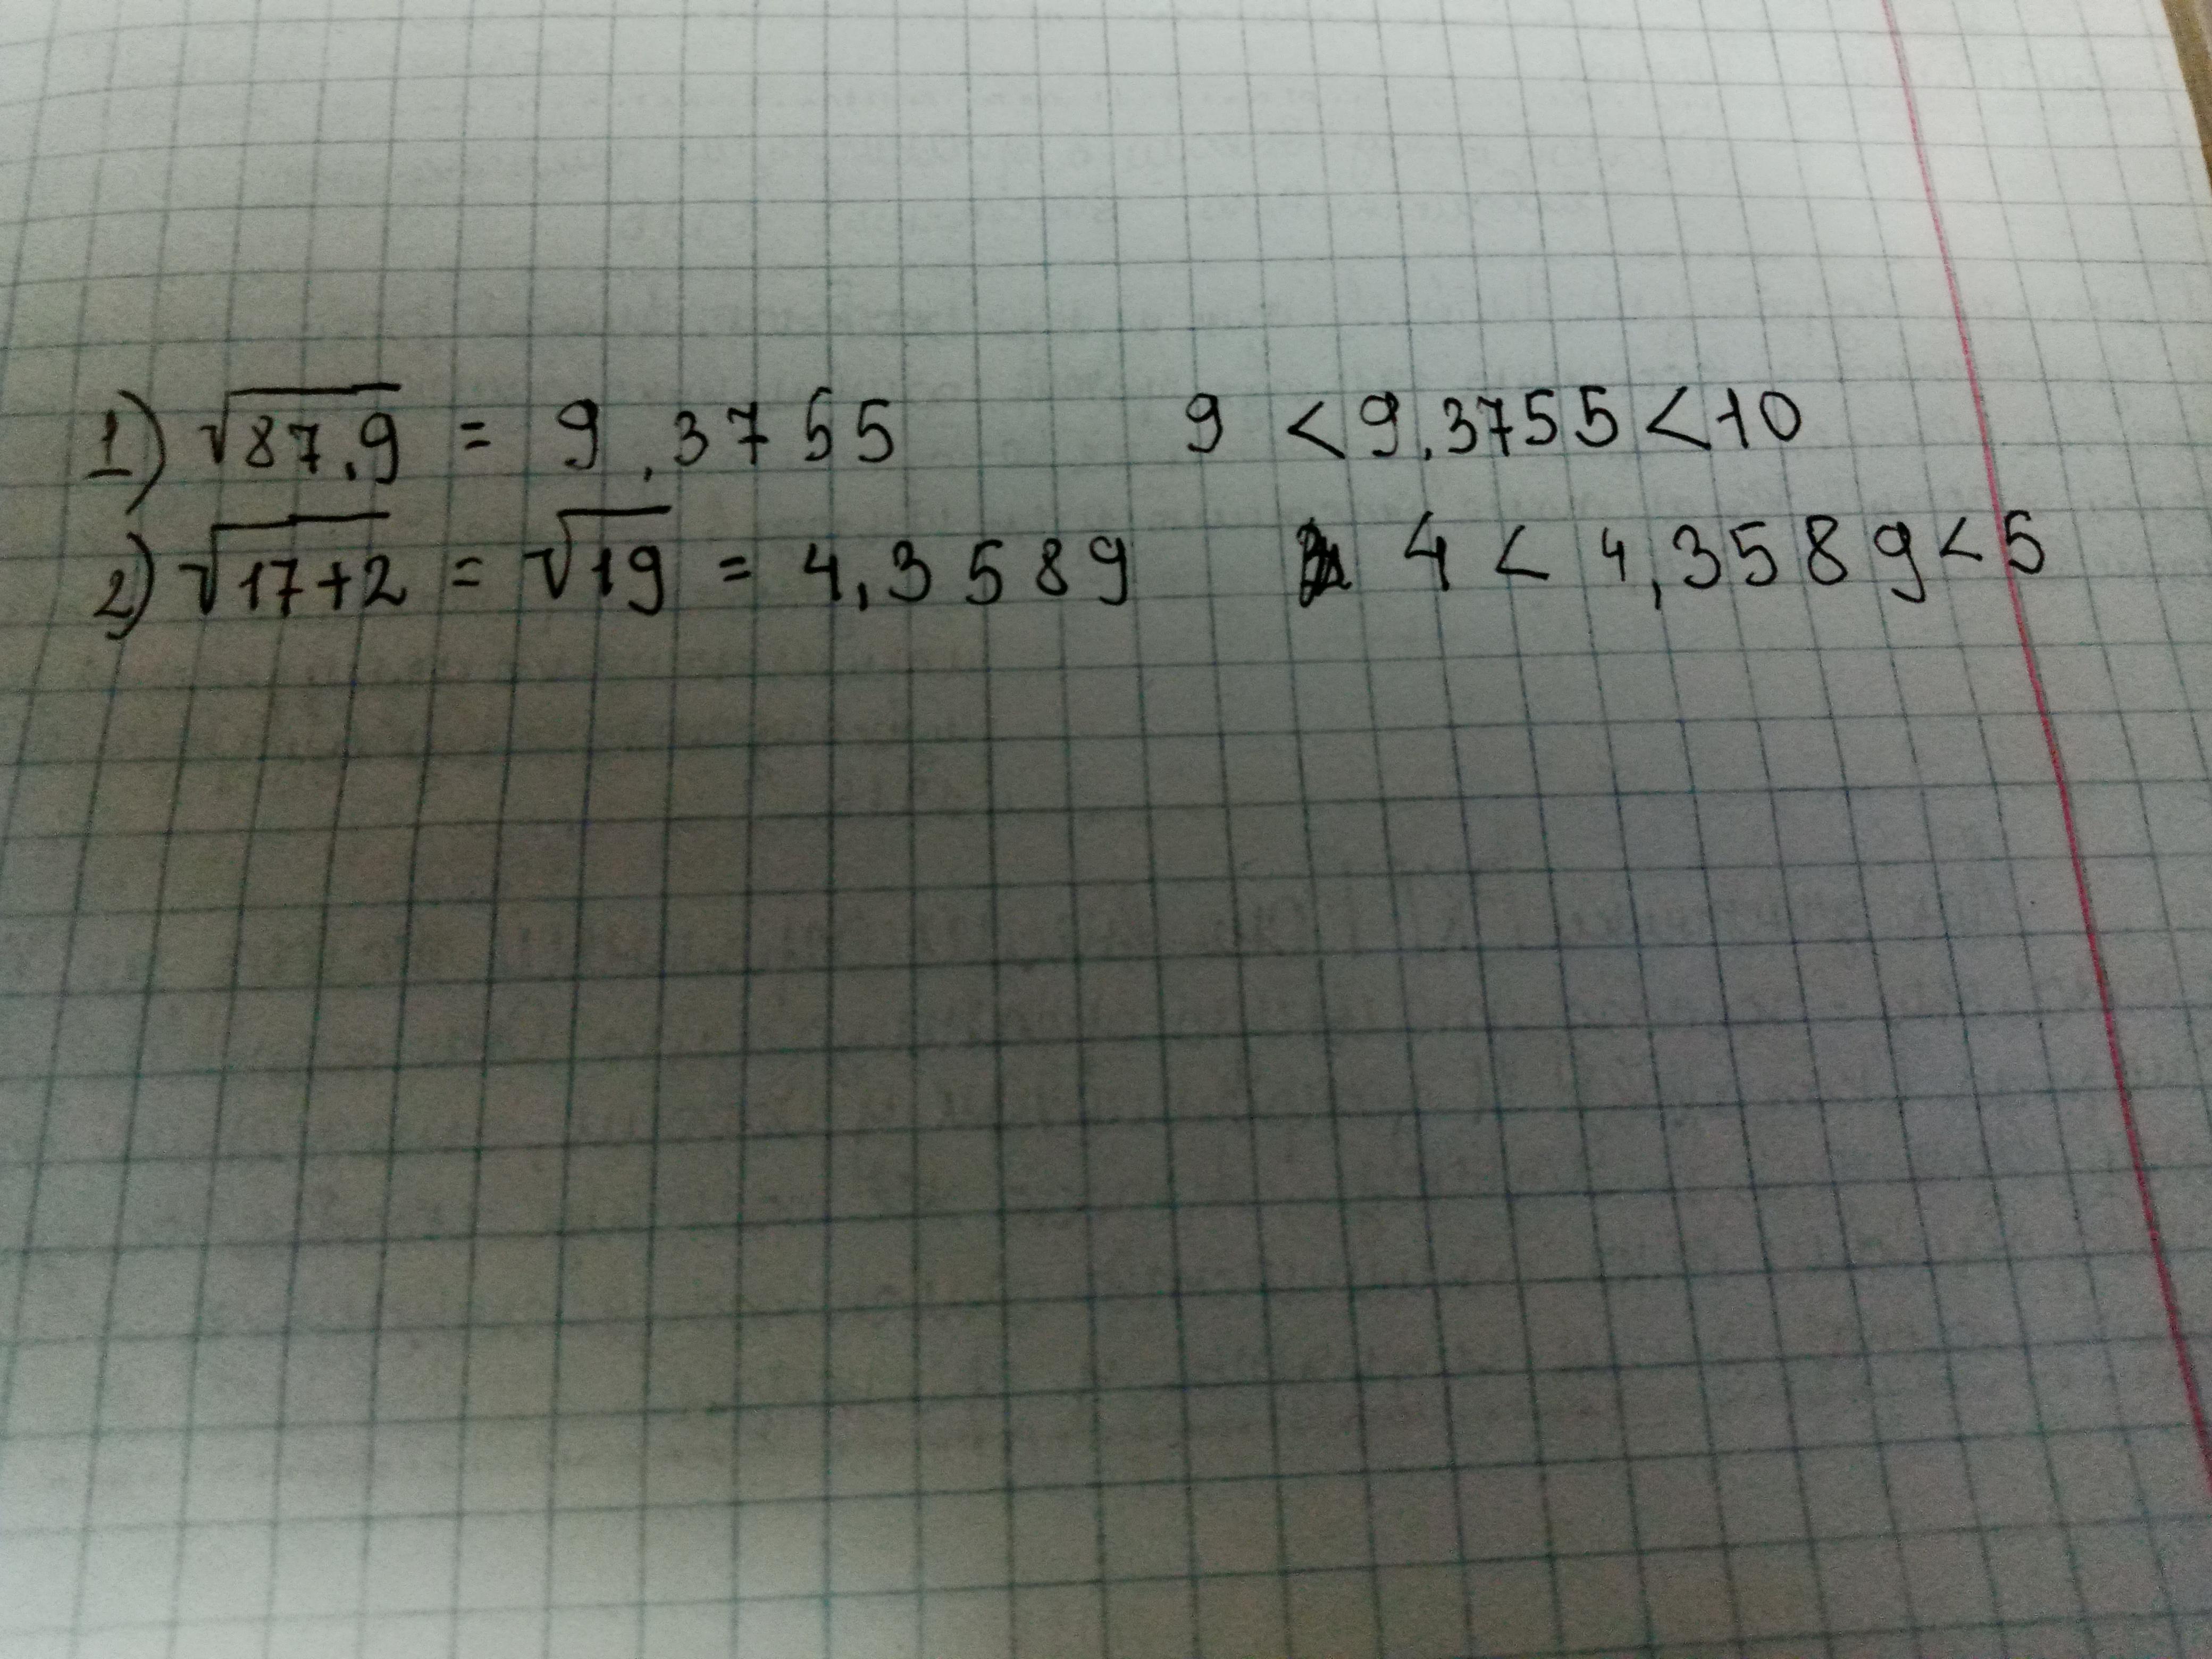 1) √87,9 = 9,3755 9 < 9,3755 < 10
2) √17+2 = √19 = 4,3589 4 < 4,3589 < 5